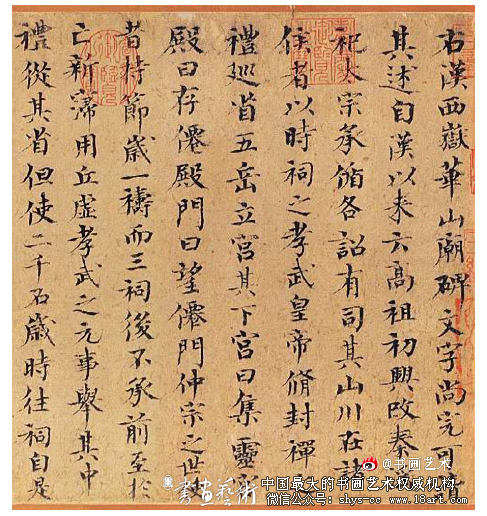 右漢西嶽華山廟碑文字尚完可讀
其述自漢以來云高祖初興改秦
祀太宗承脩各詔有司其山川在諸
侯者以時祠之孝武皇帝脩封禪
禮巡省五岳立宮其下宮曰集靈
殿曰存僊殿門曰望僊門仲宗之世
者持節歲一禱而三祠後不承前至於
亡新寖用丘虛孝武之元事舉其中
禮從其省但使二千石歲時往祠自是
@书画艺术
書畫藝術
中国最大的书画艺术权威机构
微信公众号：shys-cc www.18art.com